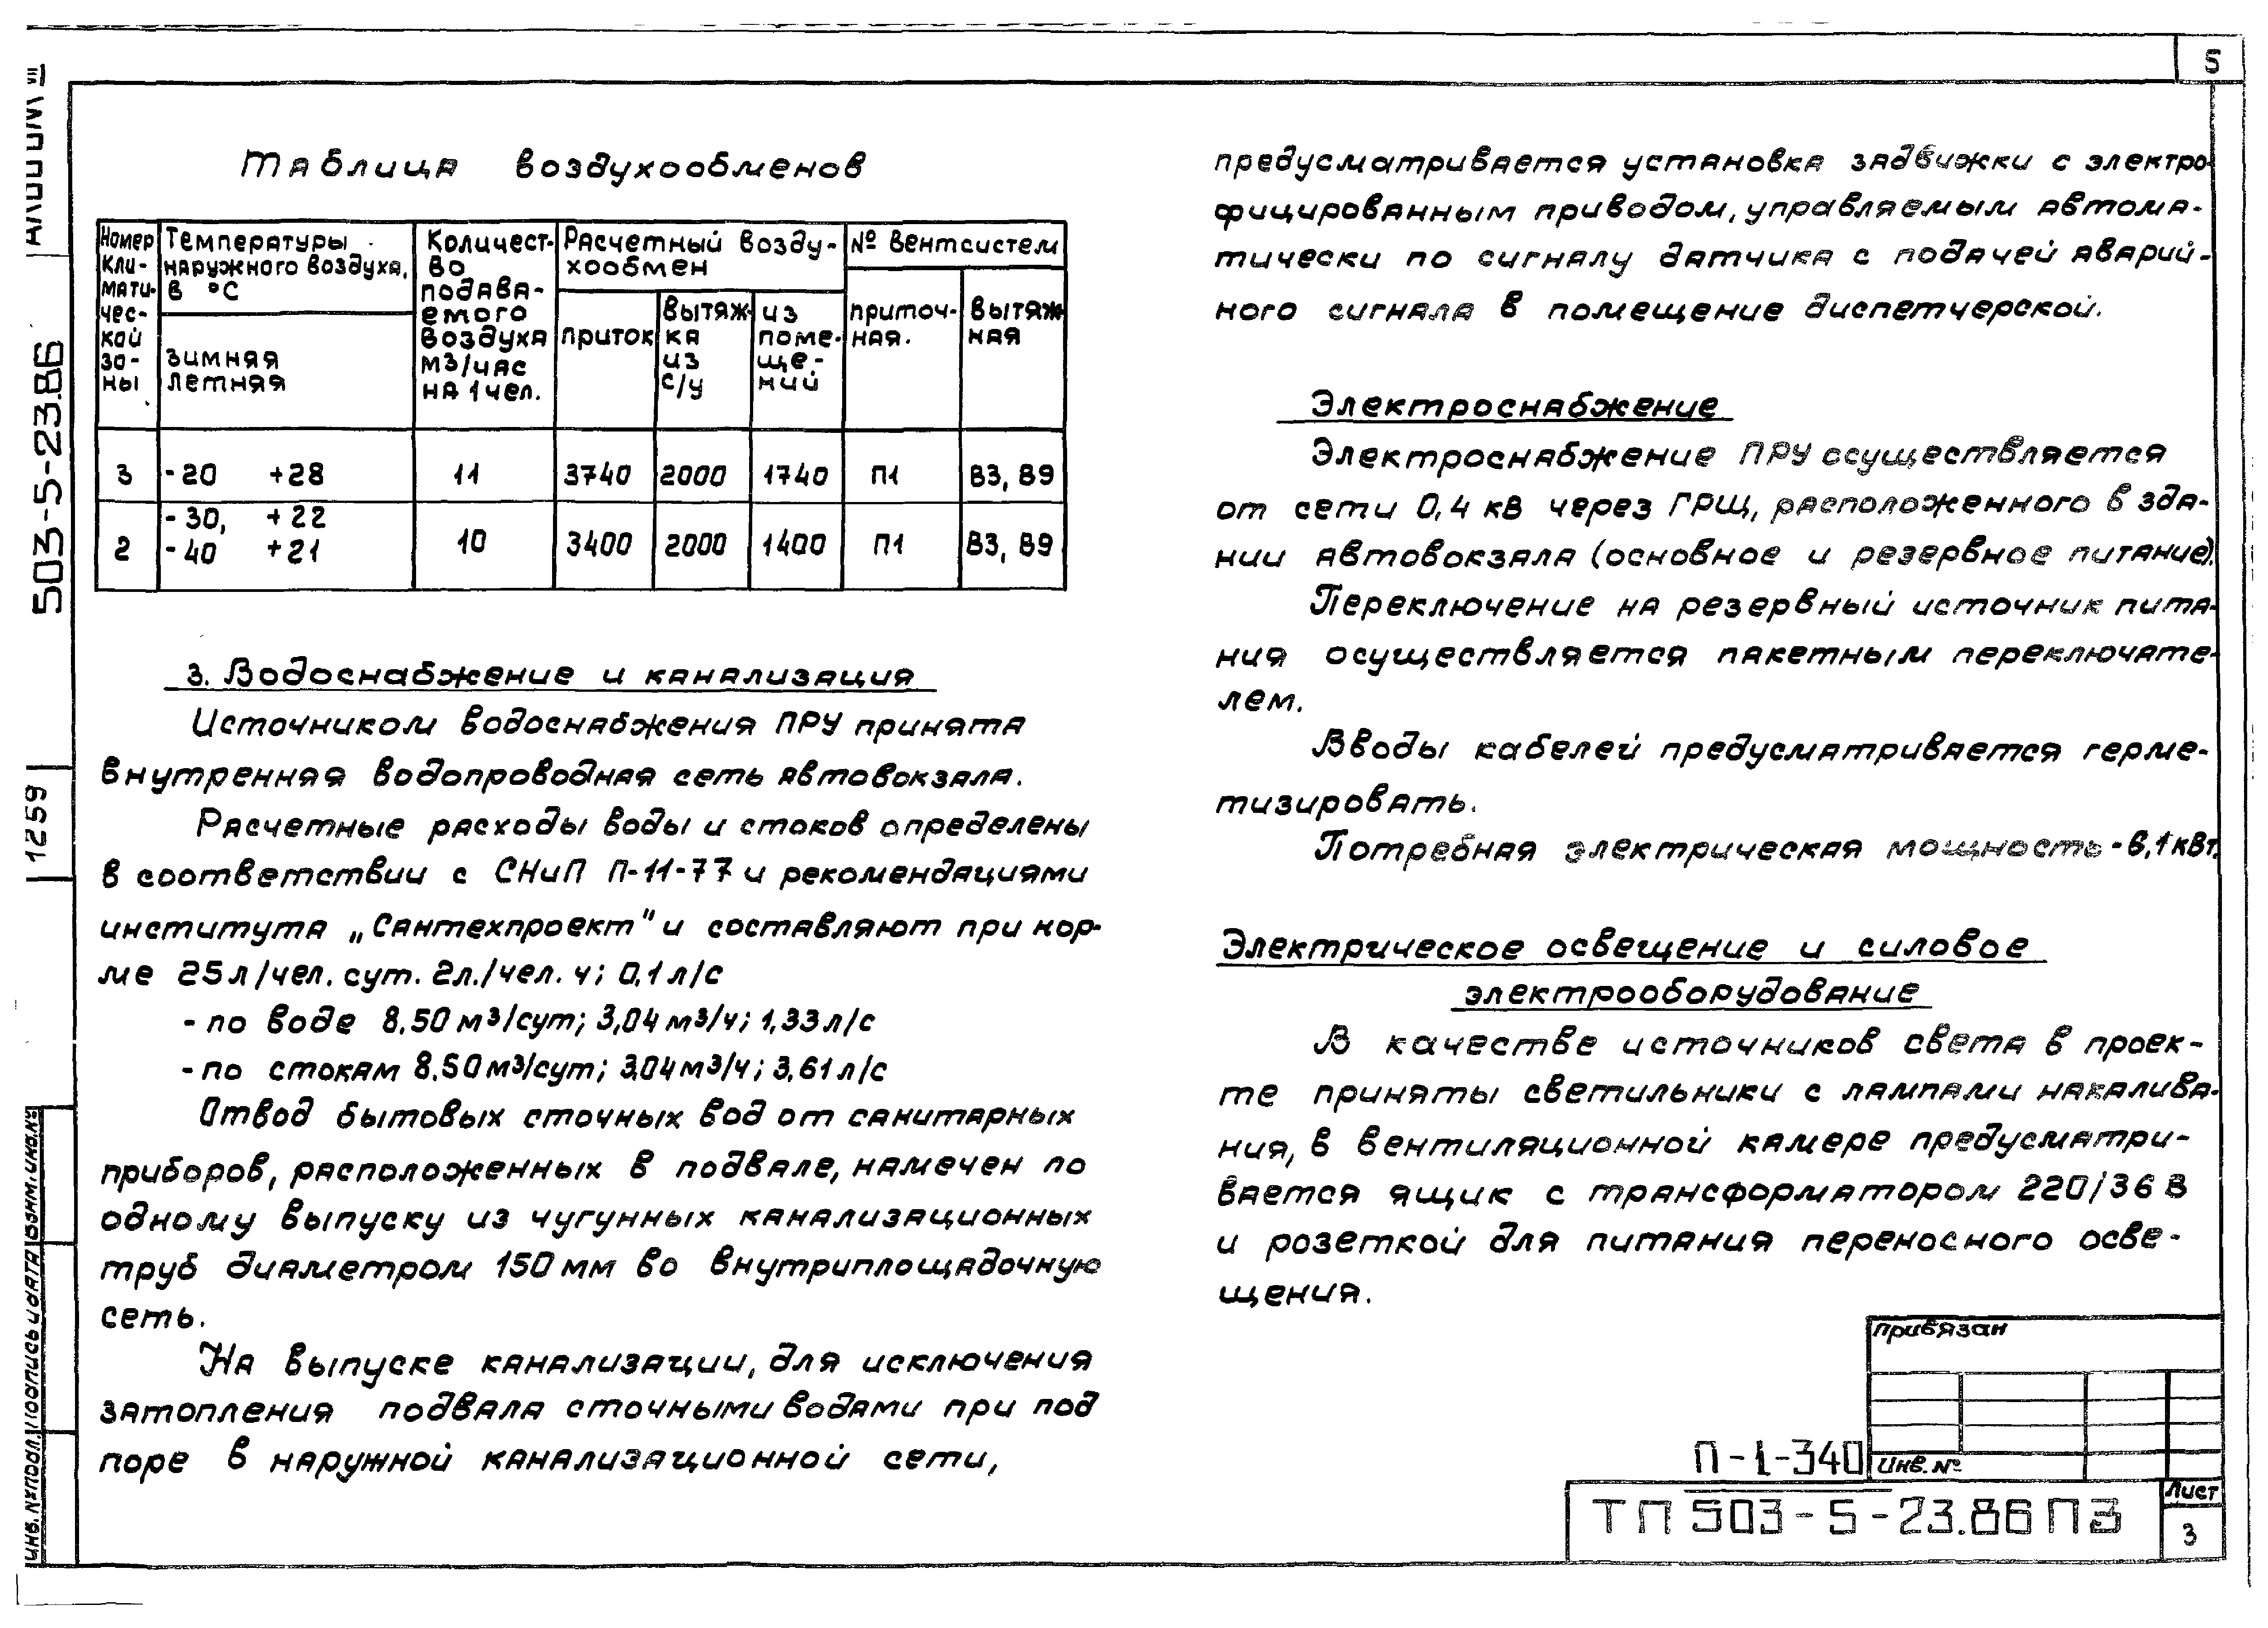 5
Таблица воздухообменов
Номер климатической зоны
Температуры наружного воздуха, в °С
зимняя
летняя
Количество подаваемого воздуха м3/час на 1 чел.
Расчетный воздухообмен
приток
вытяжка из с/у
из помещений
№ вентсистем
приточная.
вытяжная
3 -20 +28 11 3740 2000 1740 П1 В3, В9
2 -30, +22 -40 +21 10 3400 2000 1400 П1 В3, В9
3. Водоснабжение и канализация
Источником водоснабжения ПРУ принята
внутренняя водопроводная сеть автовокзала.
Расчетные расходы воды и стоков определены
в соответствии с СНиП П-11-77 и рекомендациями
института „Сантехпроект" и составляют при нор-
ме 25л/чел. сут. 2л./чел. ч; 0,1 л/с
- по воде 8,50 м3/сут; 3,04 м3/ч; 1,33 л/с
- по стокам 8,50 м3/сут; 3,04 м3/ч; 3,61 л/с
Отвод бытовых сточных вод от санитарных
приборов, расположенных в подвале, намечен по
одному выпуску из чугунных канализационных
труб диаметром 150 мм во внутриплощадочную
сеть.
На выпуске канализации, для исключения
затопления подвала сточными водами при под
поре в наружной канализационной сети,
предусматривается установка задвижки с электро-
фицированным приводом, управляемым автома-
тически по сигналу датчика с подачей аварий-
ного сигнала в помещение диспетчерской.
Электроснабжение
Электроснабжение ПРУ осуществляется
от сети 0,4 кВ через ГРЩ, расположенного в зда-
нии автовокзала (основное и резервное питание).
Переключение на резервный источник пита-
ния осуществляется пакетным переключате-
лем.
Вводы кабелей предусматривается герме-
тизировать.
Потребная электрическая мощность - 6,1 кВт.
Электрическое освещение и силовое
электрооборудование
В качестве источников света в проек-
те приняты светильники с лампами накалива-
ния, в вентиляционной камере предусматри-
вается ящик с трансформатором 220/36 В
и розеткой для питания переносного осве-
щения.
привязан
Инв. №
П-1-340
ТП 503-5-23.86 ПЗ
Лист
3
503-5-23.86
1259
Инв. № подл. Подпись и дата Взам. инв. №